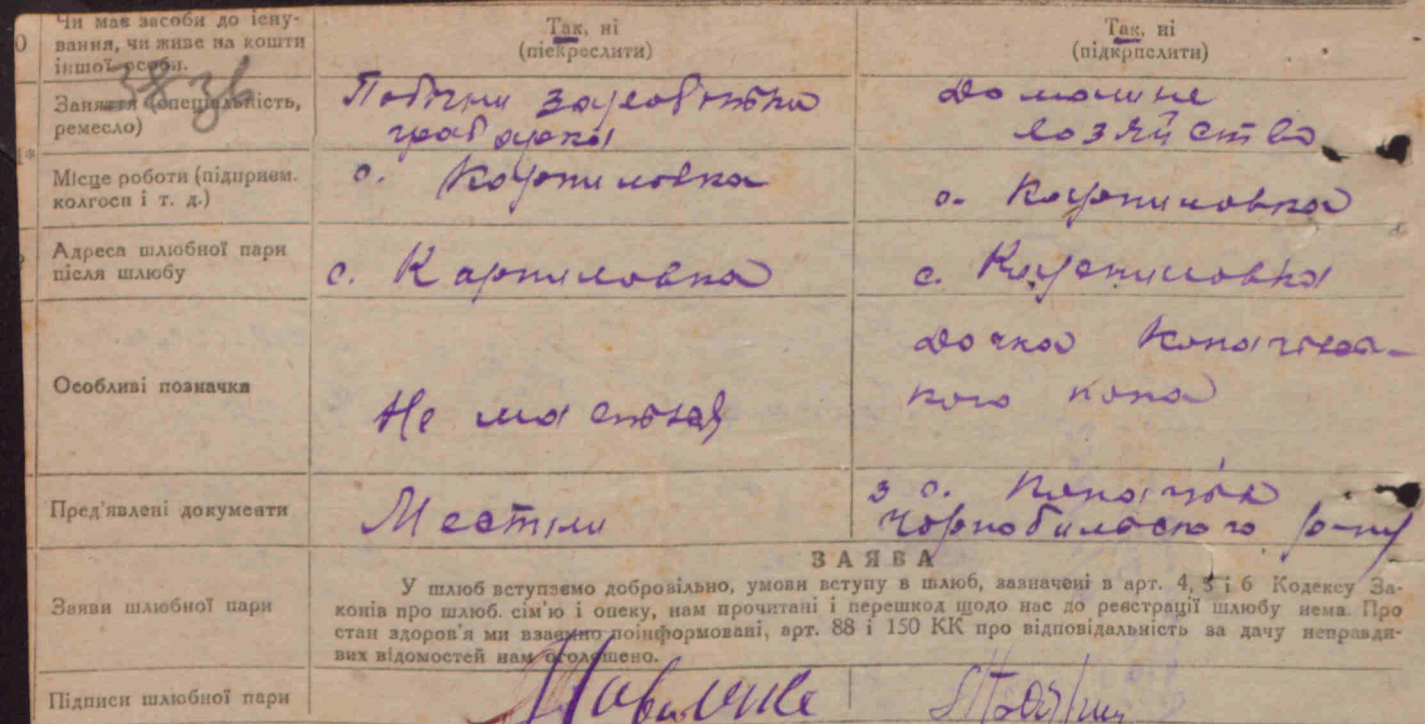 Чи має засоби до існу-
вання, чи живе на кошти
іншої особи.
Так, ні
(піекреслити)
Так, ні
(підкрпслити)
Заняття (спеціальність,
ремесло)
Побічни заработки
грабарка
Домашне
хозяйство
Місце роботи (підприєм.
колгосп і т. д.)
с. Карпиловка
с. Карпиловка
Адреса шлюбної пари
після шлюбу
с. Карпиловка
с. Карпиловка
Особливі позначки
Не
дочка
попа
Пред'явлені документи
з с.
Чорнобильского р-ну
ЗАЯВА
Заяви шлюбної пари
У шлюб вступаємо добровільно, умови вступу в шлюб, зазначені в арт. 4, 5 і 6 Кодексу За-
конів про шлюб. сім'ю і опеку, нам прочитані і перешкод щодо нас до реєстрації шлюбу нема. Про
стан здоров'я ми взаємно поінформовані, арт. 88 і 150 КК про відповідальність за дачу неправди-
вих відомостей нам оголошено.
Підписи шлюбної пари